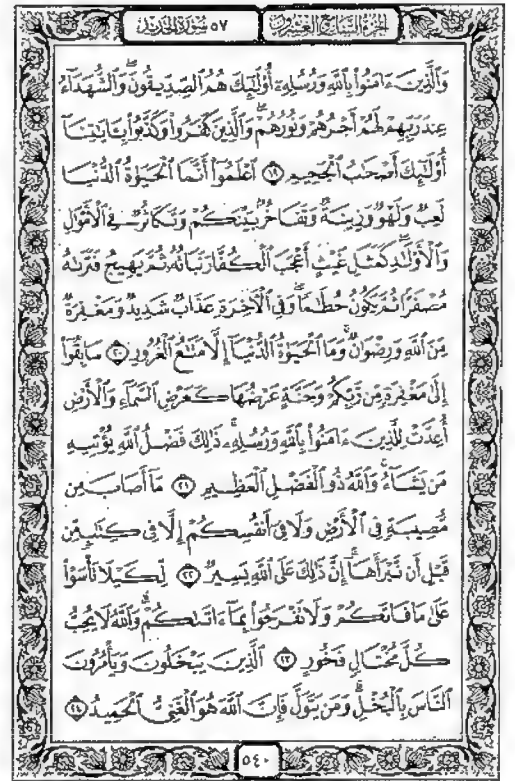 الجزء السابع والعشرون ٥٧ سورة الحديد
وَالَّذِينَ ءَامَنُوا۟ بِٱللَّهِ وَرُسُلِهِۦٓ أُو۟لَٰٓئِكَ هُمُ ٱلصِّدِّيقُونَ ۖ وَٱلشُّهَدَآءُ
عِندَ رَبِّهِمْ لَهُمْ أَجْرُهُمْ وَنُورُهُمْ ۖ وَٱلَّذِينَ كَفَرُوا۟ وَكَذَّبُوا۟ بِـَٔايَٰتِنَآ
أُو۟لَٰٓئِكَ أَصْحَٰبُ ٱلْجَحِيمِ ١٩ ٱعْلَمُوٓا۟ أَنَّمَا ٱلْحَيَوٰةُ ٱلدُّنْيَا
لَعِبٌ وَلَهْوٌ وَزِينَةٌ وَتَفَاخُرٌۢ بَيْنَكُمْ وَتَكَاثُرٌ فِى ٱلْأَمْوَٰلِ
وَٱلْأَوْلَٰدِ ۖ كَمَثَلِ غَيْثٍ أَعْجَبَ ٱلْكُفَّارَ نَبَاتُهُۥ ثُمَّ يَهِيجُ فَتَرَىٰهُ
مُصْفَرًّا ثُمَّ يَكُونُ حُطَٰمًا ۖ وَفِى ٱلْءَاخِرَةِ عَذَابٌ شَدِيدٌ وَمَغْفِرَةٌ
مِّنَ ٱللَّهِ وَرِضْوَٰنٌ ۚ وَمَا ٱلْحَيَوٰةُ ٱلدُّنْيَآ إِلَّا مَتَٰعُ ٱلْغُرُورِ ٢٠ سَابِقُوٓا۟
إِلَىٰ مَغْفِرَةٍ مِّن رَّبِّكُمْ وَجَنَّةٍ عَرْضُهَا كَعَرْضِ ٱلسَّمَآءِ وَٱلْأَرْضِ
أُعِدَّتْ لِلَّذِينَ ءَامَنُوا۟ بِٱللَّهِ وَرُسُلِهِۦ ۚ ذَٰلِكَ فَضْلُ ٱللَّهِ يُؤْتِيهِ
مَن يَشَآءُ ۚ وَٱللَّهُ ذُو ٱلْفَضْلِ ٱلْعَظِيمِ ٢١ مَآ أَصَابَ مِن
مُّصِيبَةٍ فِى ٱلْأَرْضِ وَلَا فِىٓ أَنفُسِكُمْ إِلَّا فِى كِتَٰبٍ مِّن
قَبْلِ أَن نَّبْرَأَهَآ ۚ إِنَّ ذَٰلِكَ عَلَى ٱللَّهِ يَسِيرٌ ٢٢ لِّكَيْلَا تَأْسَوْا۟
عَلَىٰ مَا فَاتَكُمْ وَلَا تَفْرَحُوا۟ بِمَآ ءَاتَىٰكُمْ ۗ وَٱللَّهُ لَا يُحِبُّ
كُلَّ مُخْتَالٍ فَخُورٍ ٢٣ ٱلَّذِينَ يَبْخَلُونَ وَيَأْمُرُونَ
ٱلنَّاسَ بِٱلْبُخْلِ ۗ وَمَن يَتَوَلَّ فَإِنَّ ٱللَّهَ هُوَ ٱلْغَنِىُّ ٱلْحَمِيدُ ٢٤
٥٤٠